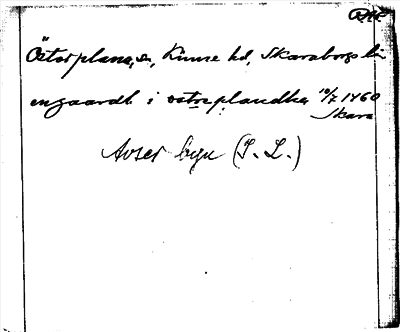 RAÄ
Österplana, sn, Kinne hd, Skaraborgs län
engaardh i østreplandhæ 10/7 1460
Skara
Avser byn (I. L.)